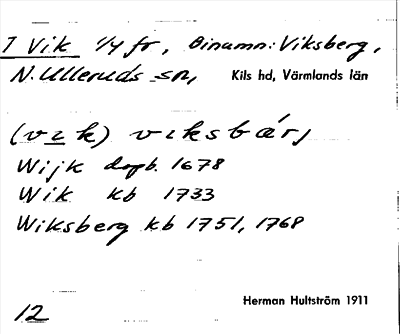 7 Vik 1/4 fr, Binamn: Viksberg,
N. Ulleruds sn, Kils hd, Värmlands län
(vik) viksbärj
Wijk dopb. 1678
Wik kb 1733
Wiksberg kb 1751, 1768
Herman Hultström 1911
12